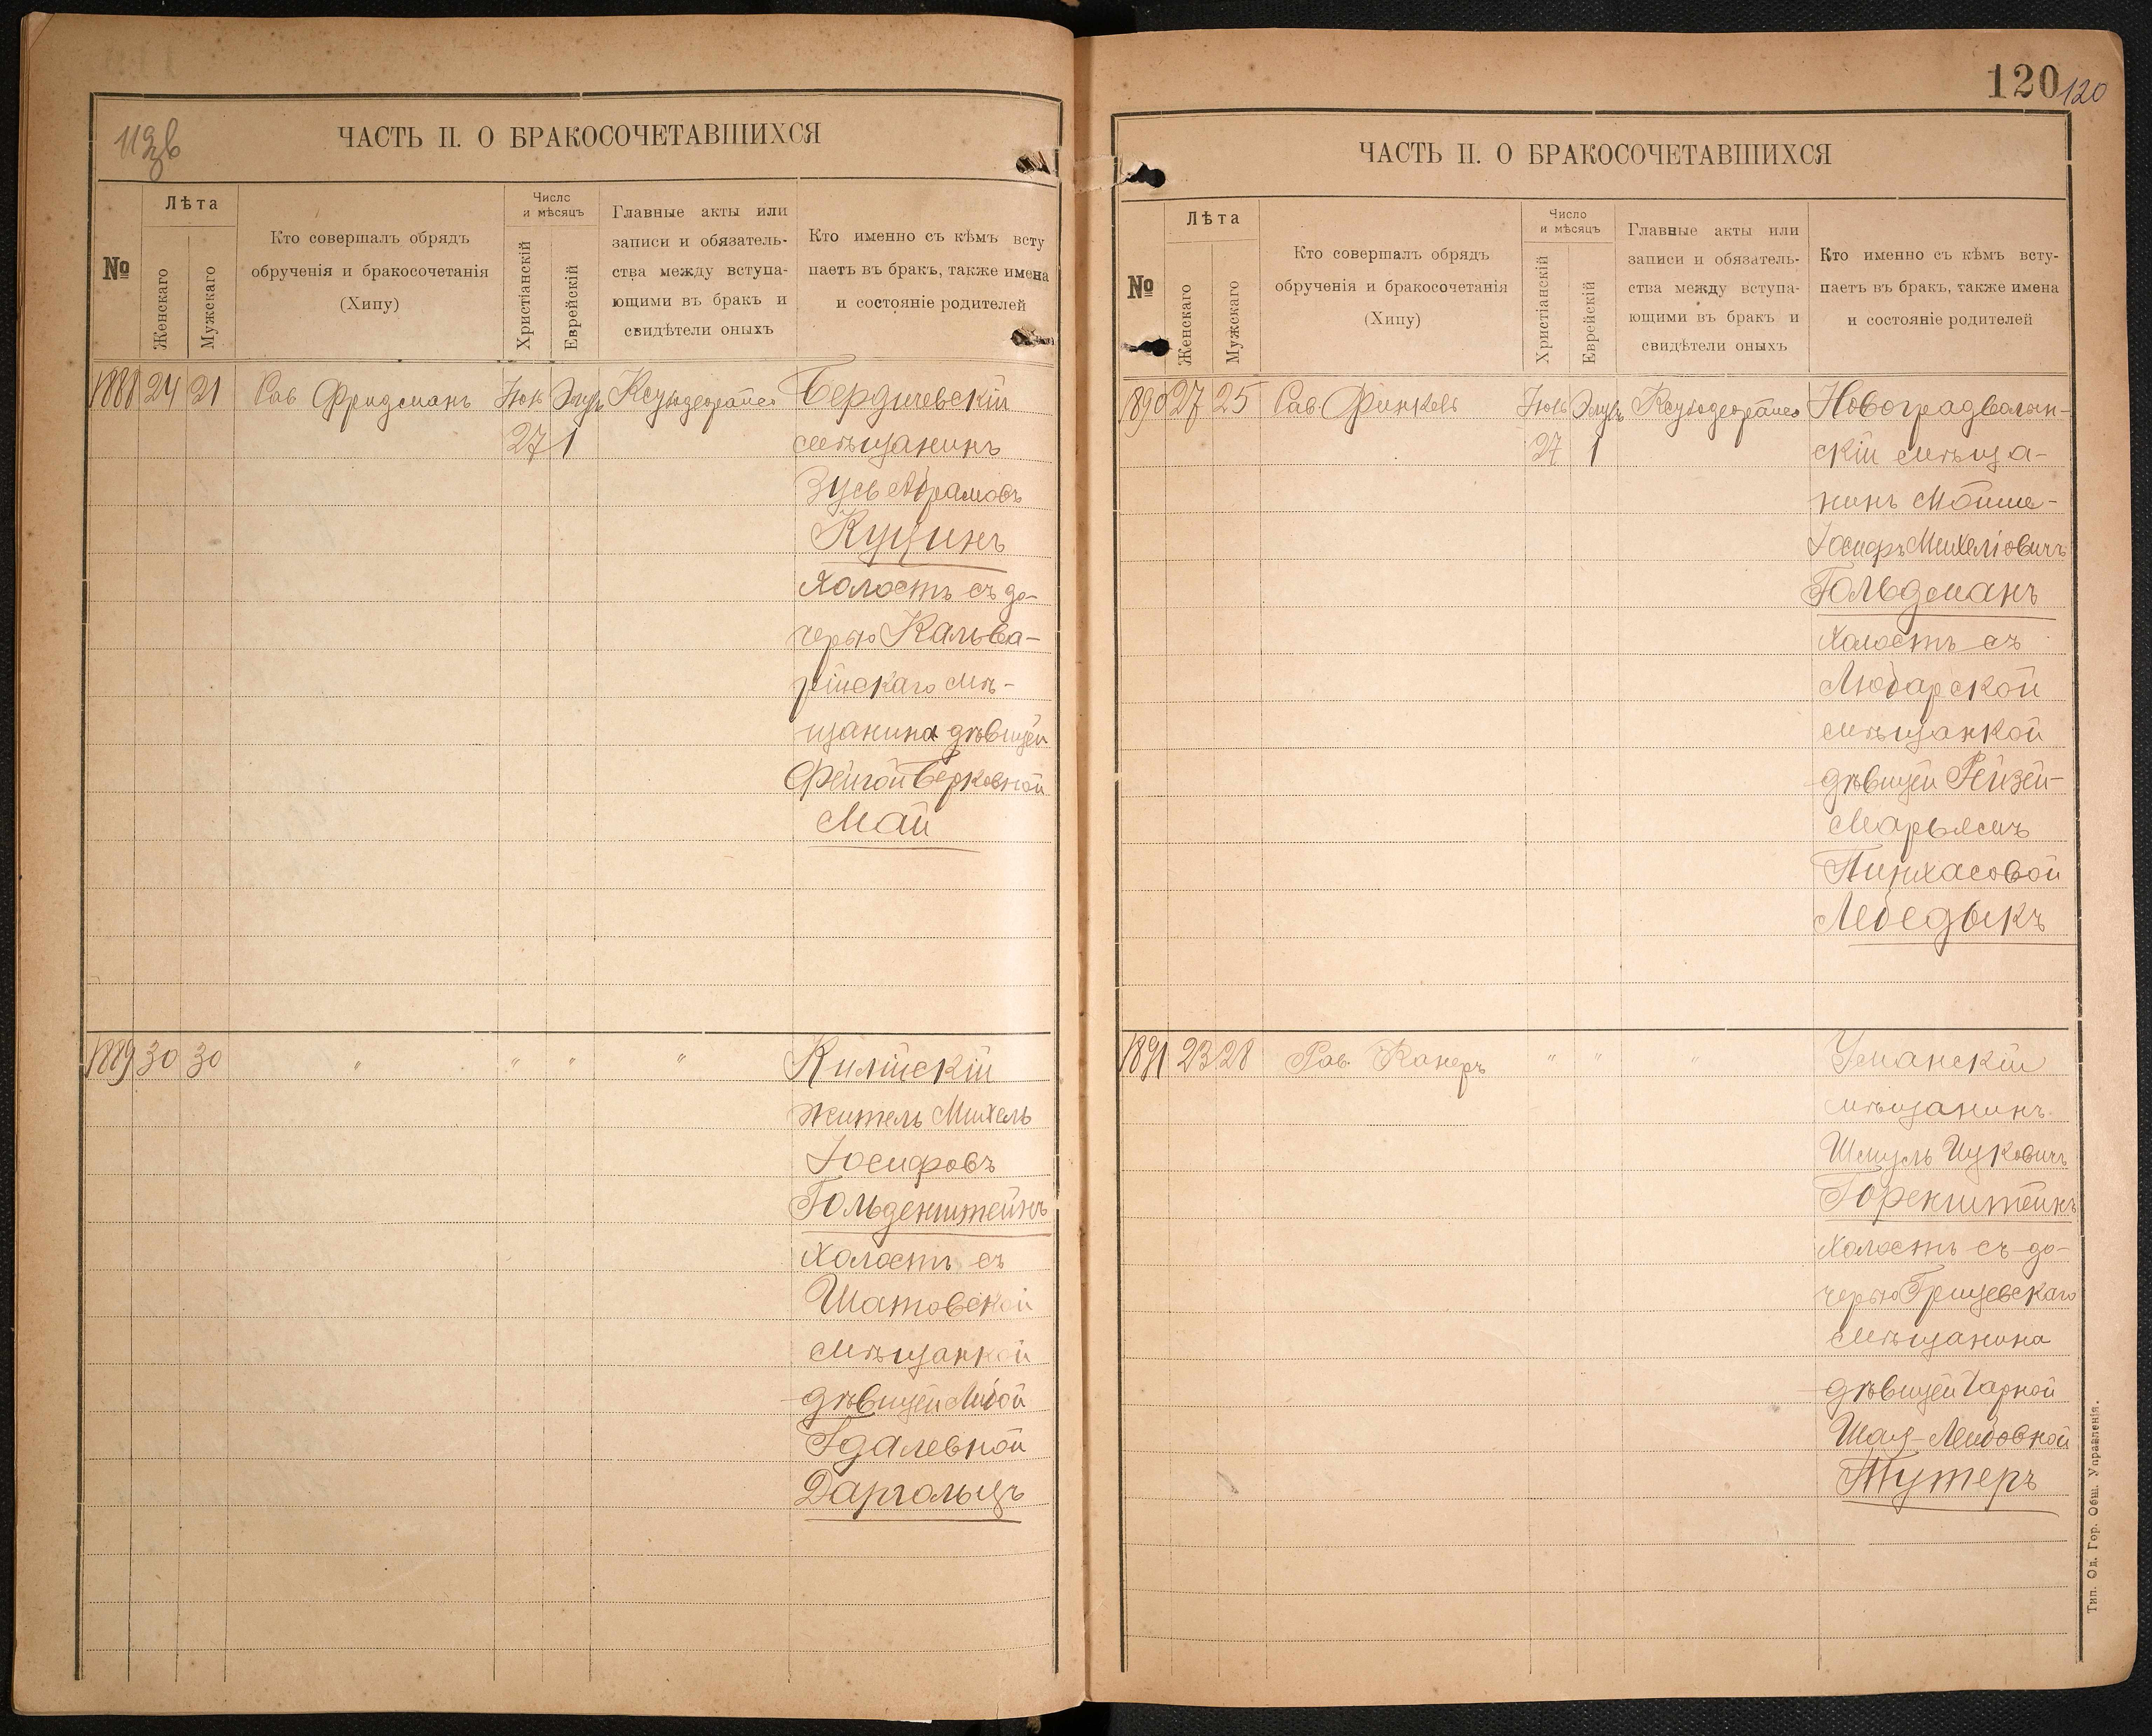 119в
ЧАСТЬ II. О БРАКОСОЧЕТАВШИХСЯ
№
Лѣта
Женскаго
Мужскаго
Кто совершалъ обрядъ
обрученія и бракосочетанія
(Хипу)
Число
и мѣсяцъ
Христіанскій
Еврейскій
Главные акты или
записи и обязатель-
ства между вступа-
ющими въ бракъ и
свидѣтели оныхъ
Кто именно съ кѣмъ всту
паетъ въ бракъ, также имена
и состояніе родителей
1888 24 21 Рав Фридманъ Іюл Элулъ
27 1
Бердичевскій
мѣщанинъ
Зусь Абрамовъ
Куцинъ
холостъ съ до-
черью Кальва-
рійскаго мѣ-
щанина дѣвицей
Фейгой Берковной
Май
1889 30 30 " " " "
Килійскій
житель Михель
Іосифовъ
Гольденштейнъ
холостъ съ
Шатовской
мѣщанкой
дѣвицей Либой
Гдалевной
Даргольцъ
120 120
ЧАСТЬ II. О БРАКОСОЧЕТАВШИХСЯ
№
Лѣта
Женскаго
Мужскаго
Кто совершалъ обрядъ
обрученія и бракосочетанія
(Хипу)
Число
и мѣсяцъ
Христіанскій
Еврейскій
Главные акты или
записи и обязатель-
ства между вступа-
ющими въ бракъ и
свидѣтели оныхъ
Кто именно съ кѣмъ всту-
паетъ въ бракъ, также имена
и состояніе родителей
1890 27 25 Рав Финкель Іюль Элулъ
27 1
Новоградволын-
скій мѣща-
нинъ Мойше-
Іосифъ Михеліовичъ
Гольдманъ
холостъ съ
Любарской
мѣщанкой
дѣвицей Рейзей-
Марьямъ
Пинхасовой
Лебедыкъ
1891 23 28 Рав Канеръ " " "
Уманскій
мѣщанинъ
Шмуль Ицковичъ
Горенштейнъ
холостъ съ до-
черью Грицевскаго
мѣщанина
дѣвицей Чарной
Шая-Лейбовной
Тутеръ
Тип. Од. Гор. Общ. Управленія.